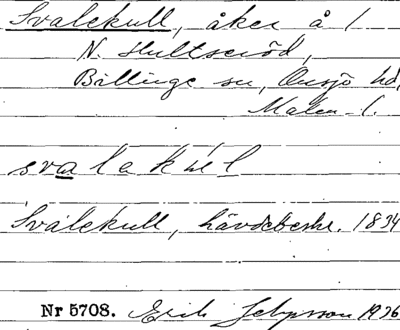 Svalekull, åker å 1
N. Hultseröd,
Billinge sn, Onsjö hd,
Malm. l.
svalakul
Svalekull, hävdebeskr. 1834
Nr 5708. Erik 1926